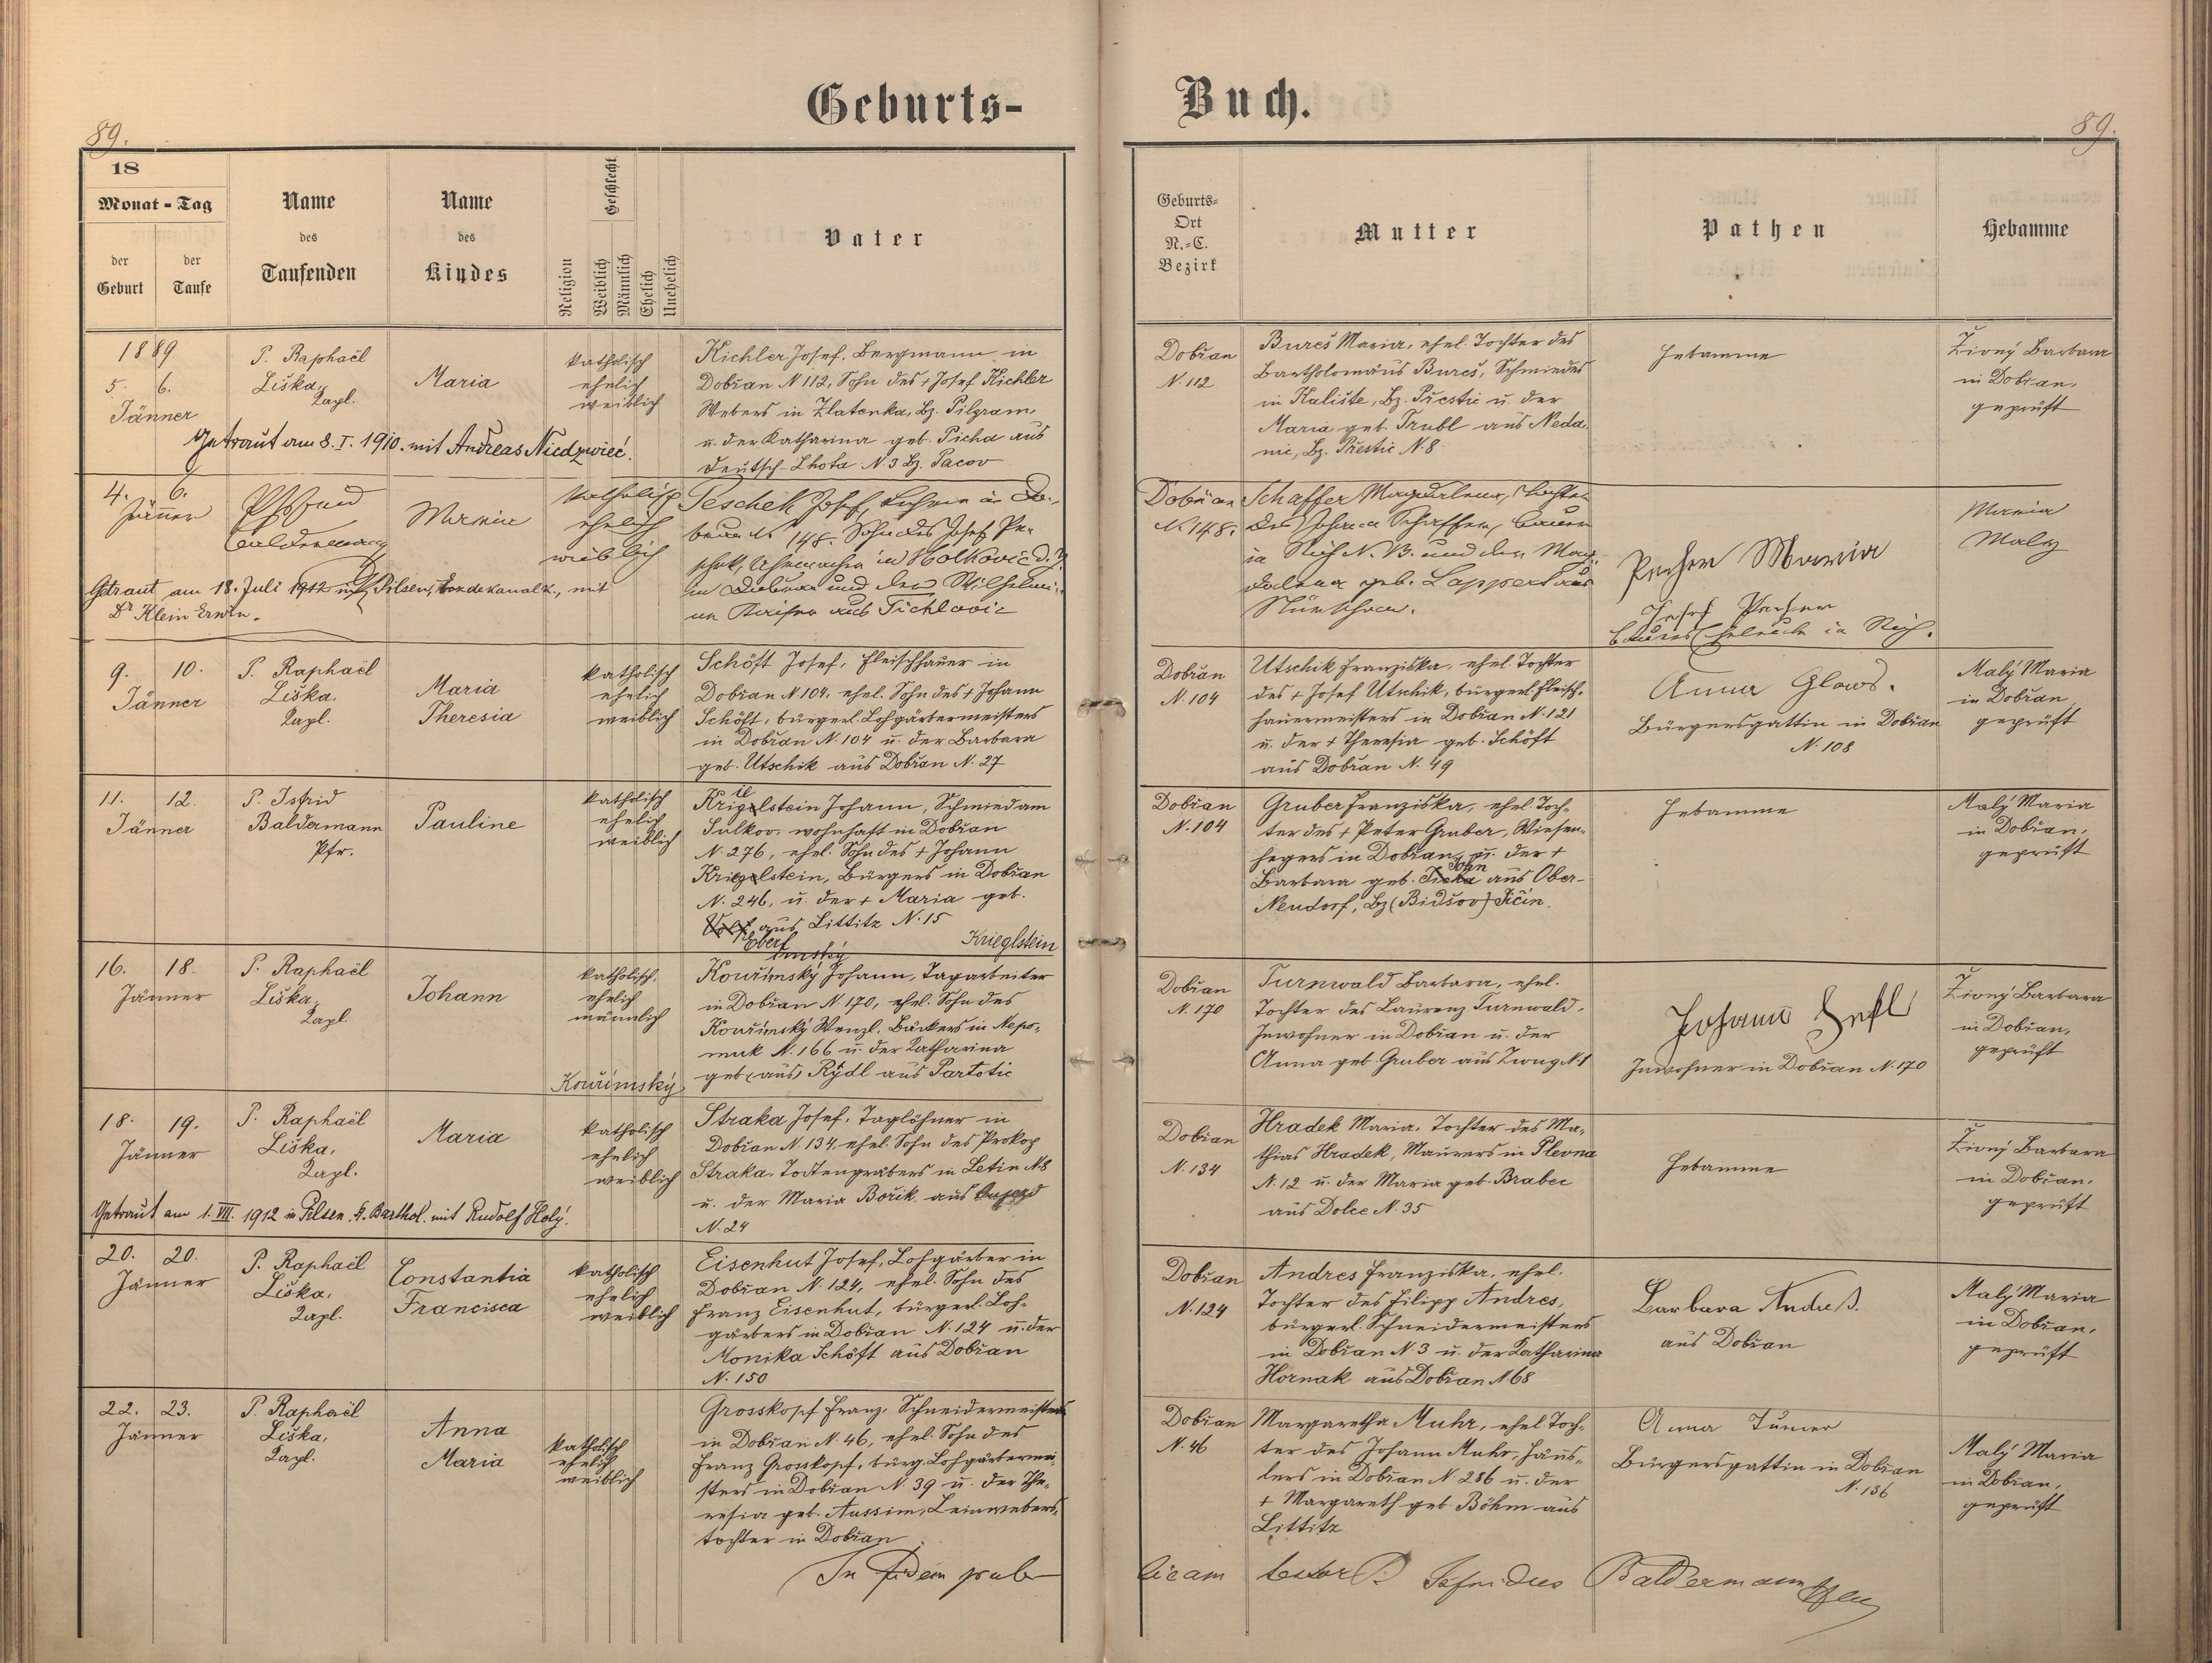 Geburts-
Buch.
89.
89.
18
Monat - Tag
der Geburt
der Taufe
Name des Taufenden
Name des Kindes
Religion
Geschlecht
Weiblich
Männlich
Ehelich
Unehelich
Vater
Geburts-
Ort
N.-C.
Bezirk
Mutter
Pathen
Hebamme
1889
5. 6.
Jänner
P. Raphaël
Liška,
Kapl.
Maria
katholisch
ehelich
weiblich
Kichler Josef, Bergmann in
Dobřan N 112, Sohn des + Josef Kichler
Webers in Zlatenka, Bz. Pilgram,
u. der Katharina geb. Picha aus
Deutsch-Lhota N. 3 Bz. Pacov
Getraut am 8. I. 1910. mit Andreas Niedzwieć.
Dobřan
N. 112
Bureš Maria, ehel. Tochter des
Bartholomäus Bureš, Schmiedes
in Haliste, Bz. Přestic u. der
Maria geb. Trubl aus Neda-
nic, Bz. Přestic N. 8
Hebamme
Živný Barbara
in Dobřan,
geprüft
4. 6.
Jänner
Baldermann
Maria
katholisch
ehelich
weiblich
Peschek Josef, in Do-
N 148. Sohn des Josef Pe-
schek, in
in und der Wilhelmi-
ne aus Tichlovic
Getraut am 18. Juli 1912 in Pilsen, mit
Dr Klein Erwin.
Dobřan
N. 148.
Schaffer Magdalena, Tochter
des Johann Schaffer, Bauer
in N. 13. und der Mag-
dalena geb. Lappert aus
Nürschan.
Pecher Maria
Josef Pecher
in
Maria
Maly
9. 10.
Jänner
P. Raphaël
Liška,
Kapl.
Maria
Theresia
katholisch
ehelich
weiblich
Schöft Josef, Fleischhauer in
Dobřan N 104, ehel. Sohn des + Johann
Schöft, bürgerl. Lohgärbermeisters
in Dobřan N. 104 u. der Barbara
geb. Utschik aus Dobřan N. 27
Dobřan
N. 104
Utschik Franziska, ehel. Tochter
des + Josef Utschik, bürgerl. Fleisch-
hauermeisters in Dobřan N. 121
u. der + Theresia geb. Schöft
aus Dobřan N. 49
Anna Glows.
Bürgersgattin in Dobřan
N. 108
Malý Maria
in Dobřan
geprüft
11. 12.
Jänner
P. Isfrid
Baldermann
Pfr.
Pauline
katholisch
ehelich
weiblich
ie
Krigelstein Johann, Schmied am
Sulkov, wohnhaft in Dobřan
N. 276, ehel. Sohn des + Johann
Kriegelstein, Bürgers in Dobřan
N. 246, u. der + Maria geb.
Volf aus Littitz N. 15
Ebert
Krieglstein
Dobřan
N. 104
Gruber Franziska, ehel. Toch-
ter des + Peter Gruber, Wiesen-
hegers in Dobřan, u. der +
Barbara geb. aus Ober-
Neudorf, Bz (Bidšov) Jičín.
Hebamme
Malý Maria
in Dobřan,
geprüft
16. 18.
Jänner
P. Raphaël
Liška,
Kapl.
Johann
katholisch,
ehelich
männlich
Kouřimský Johann, Tagarbeiter
in Dobřan N. 170, ehel. Sohn des
Kouřimský Wenzl, Bäckers in Nepo-
muk N. 166 u. der Katharina
geb (aus) Rýdl aus Partotic
Kouřimský
Dobřan
N. 170
Turnwald Barbara, ehel.
Tochter des Laurenz Turnwald,
Inwohner in Dobřan u. der
Anna geb. Gruber aus Zwug N. 1
Johann Hefl
Inwohner in Dobřan N. 170
Živný Barbara
in Dobřan,
geprüft
18. 19.
Jänner
P. Raphaël
Liška,
Kapl.
Maria
katholisch
ehelich
weiblich
Straka Josef, Taglöhner in
Dobřan N. 134, ehel. Sohn des Prokop
Straka, Todtengräbers in Letin N 8
u. der Maria Bořik aus
N. 24
Getraut am 1. VII. 1912 in Pilsen, St. Barthol. mit Rudolf Holý.
Dobřan
N. 134
Hradek Maria, Tochter des Ma-
thias Hradek, Maurers in Plevna
N. 12 u. der Maria geb. Brabec
aus Dolce N. 35
Hebamme
Živný Barbara
in Dobřan,
geprüft
20. 20.
Jänner
P. Raphaël
Liška,
Kapl.
Constantia
Francisca
katholisch
ehelich
weiblich
Eisenhut Josef, Lohgärber in
Dobřan N. 124, ehel. Sohn des
Franz Eisenhut, bürgerl. Loh-
gärbers in Dobřan N. 124 u. der
Monika Schöft aus Dobřan
N. 150
Dobřan
N. 124
Andres Franziska, ehel.
Tochter des Filipp Andres,
bürgerl. Schneidermeisters
in Dobřan N 3 u. der Katharina
Hornak aus Dobřan N 68
Barbara Andreß.
aus Dobřan
Malý Maria
in Dobřan,
geprüft
22. 23.
Jänner
P. Raphaël
Liška,
Kapl.
Anna
Maria
katholisch
ehelich
weiblich
Grosskopf Franz, Schneidermeister
in Dobřan N. 46, ehel. Sohn des
Franz Grosskopf, bürg. Lohgärbermei-
sters in Dobřan N. 39 u. der The-
resia geb. Aussim, Leinwebers-
tochter in Dobřan
Dobřan
N. 46
Margaretha Muhr, ehel Toch-
ter des Johann Muhr, Häus-
lers in Dobřan N 286 u. der
+ Margareth geb. Böhm aus
Littitz
Anna Turner
Bürgersgattin in Dobřan
N. 136
Malý Maria
in Dobřan,
geprüft
In fidem publicam testor P. Isfridus Baldermann